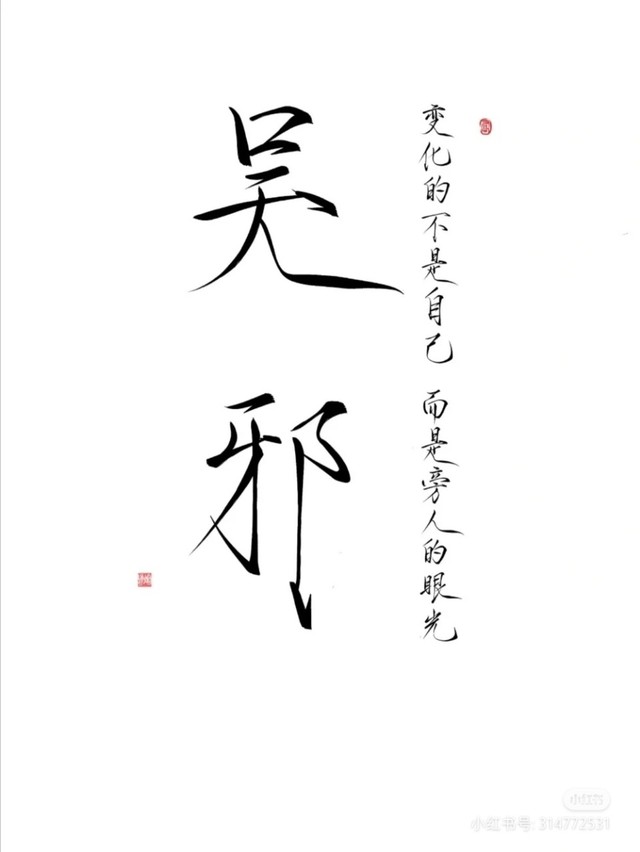 变化的不是自己 而是旁人的眼光
吴邪
小红书
小红书号: 314772531